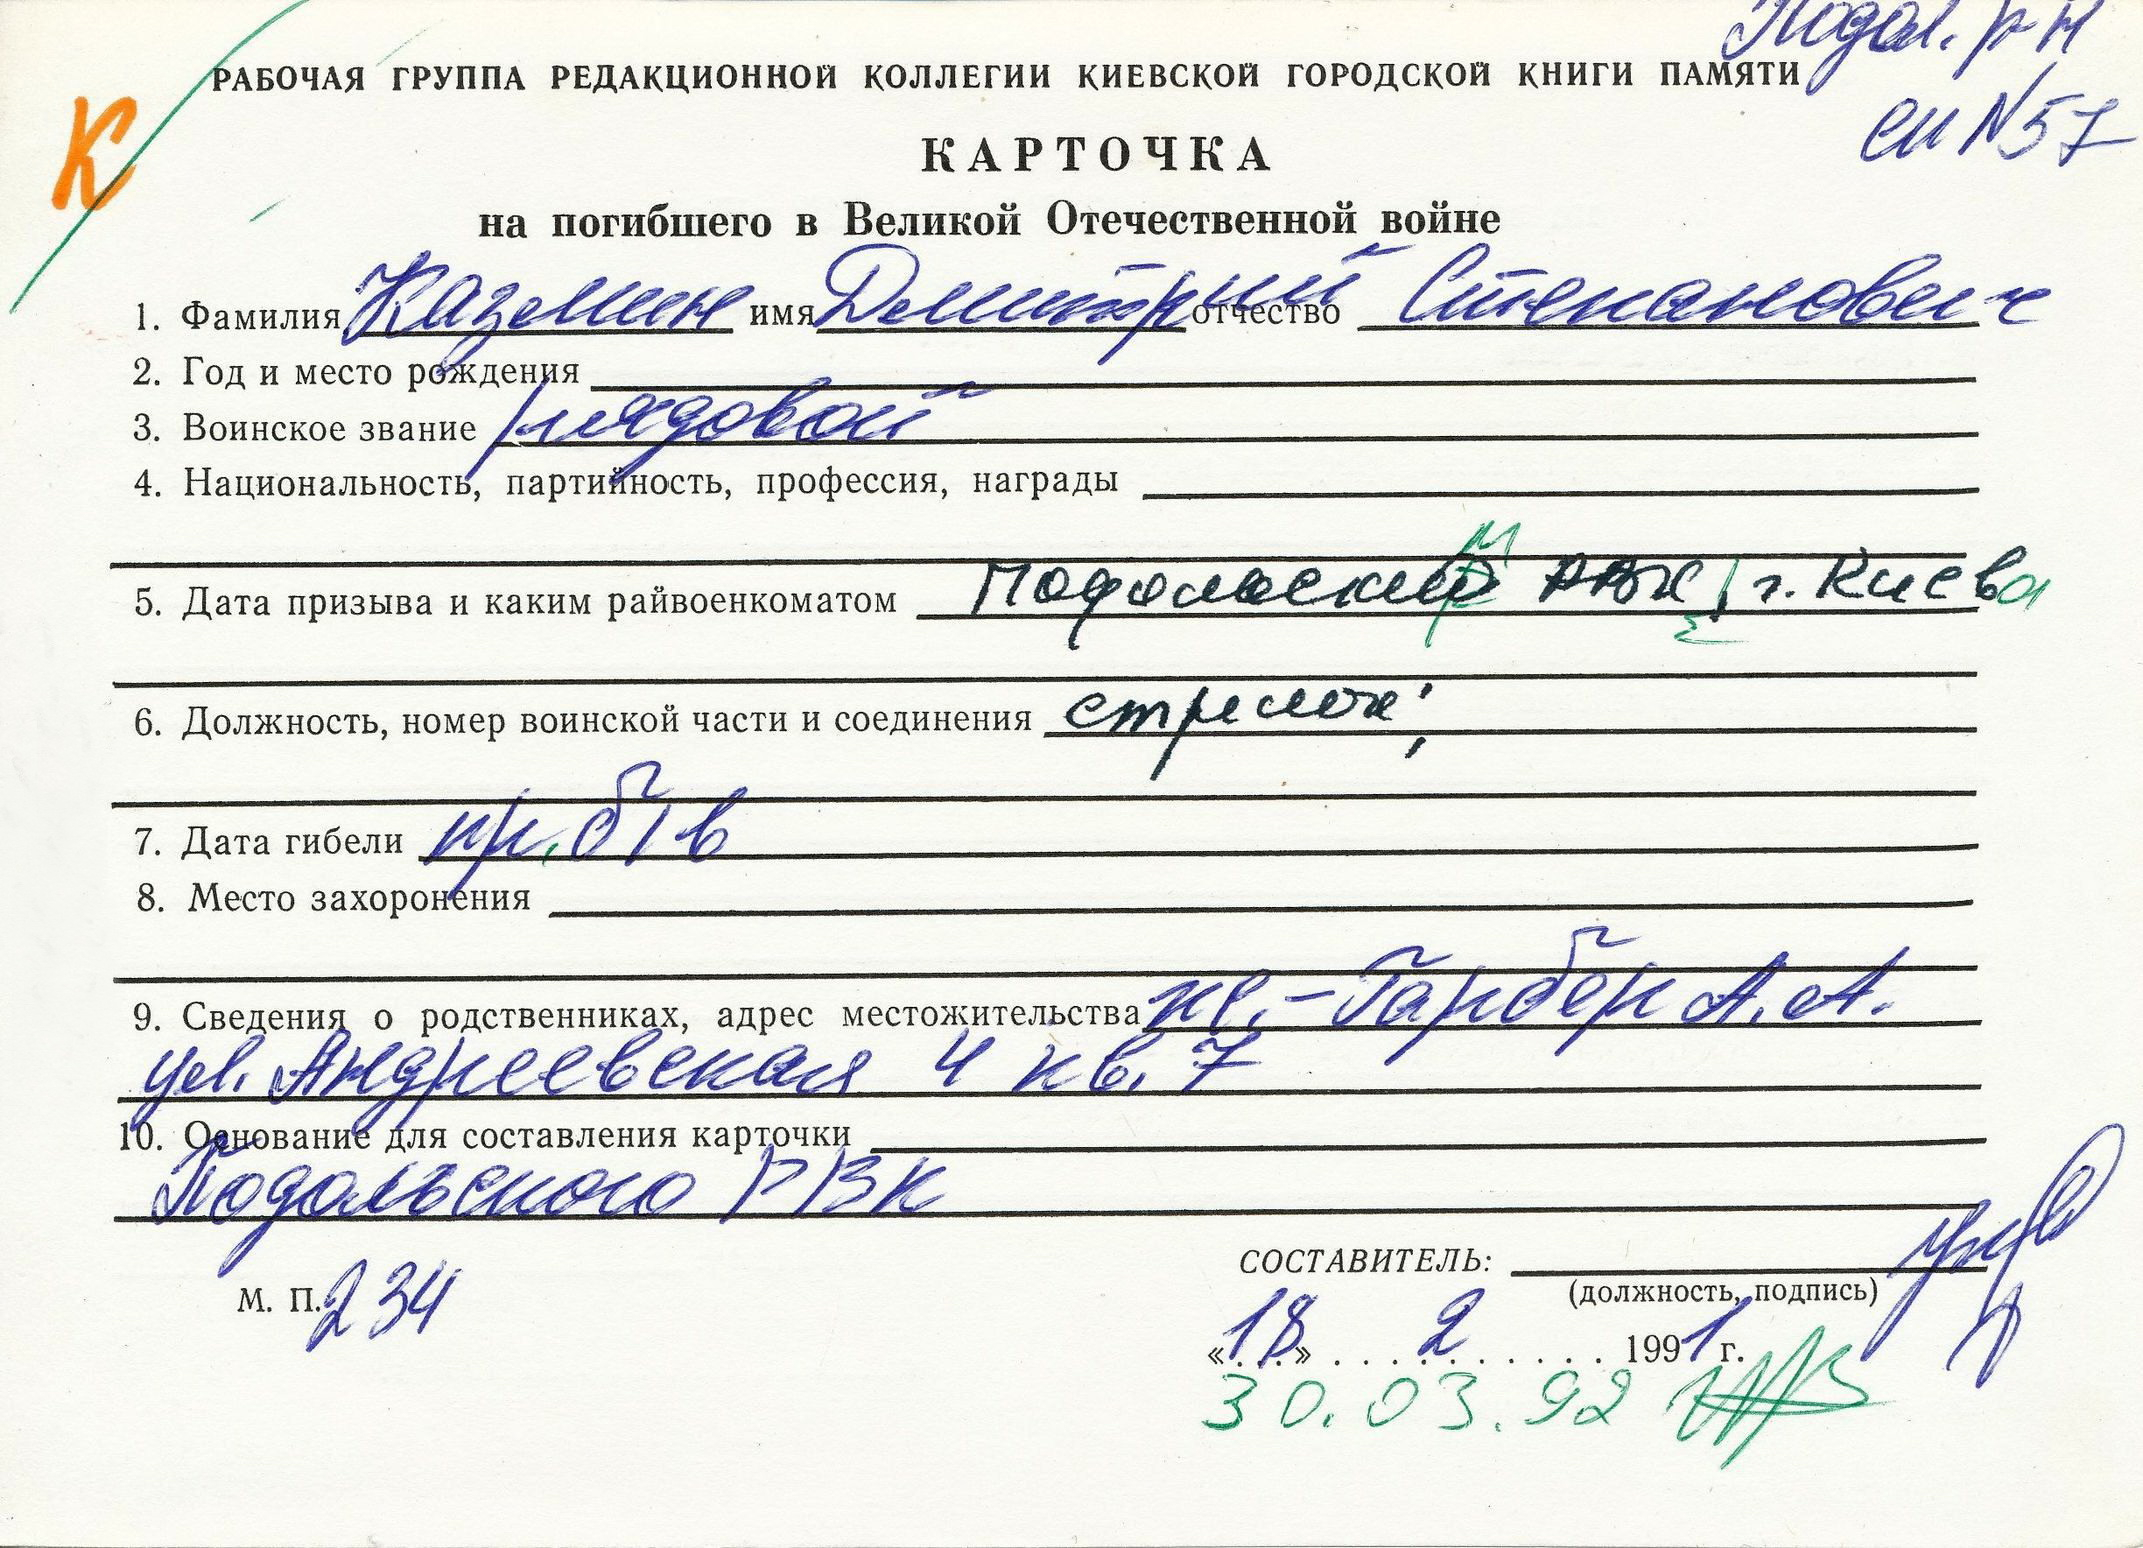 Подол. р-н
РАБОЧАЯ ГРУППА РЕДАКЦИОННОЙ КОЛЛЕГИИ КИЕВСКОЙ ГОРОДСКОЙ КНИГИ ПАМЯТИ
К
сп N57
КАРТОЧКА
на погибшего в Великой Отечественной войне
1. Фамилия Каземин имя Дмитрий отчество Степанович
2. Год и место рождения
3. Воинское звание рядовой
4. Национальность, партийность, профессия, награды
5. Дата призыва и каким райвоенкоматом Подольским РВК г. Киева
6. Должность, номер воинской части и соединения стрелок;
7. Дата гибели пр. б/в
8. Место захоронения
9. Сведения о родственниках, адрес местожительства ж. - Гарбер А. А.
ул. Андреевская 4 кв. 7
10. Основание для составления карточки
Подольского РВК
СОСТАВИТЕЛЬ:
(должность, подпись)
М. П. 234
«18» 2 1991 г.
30.03.92